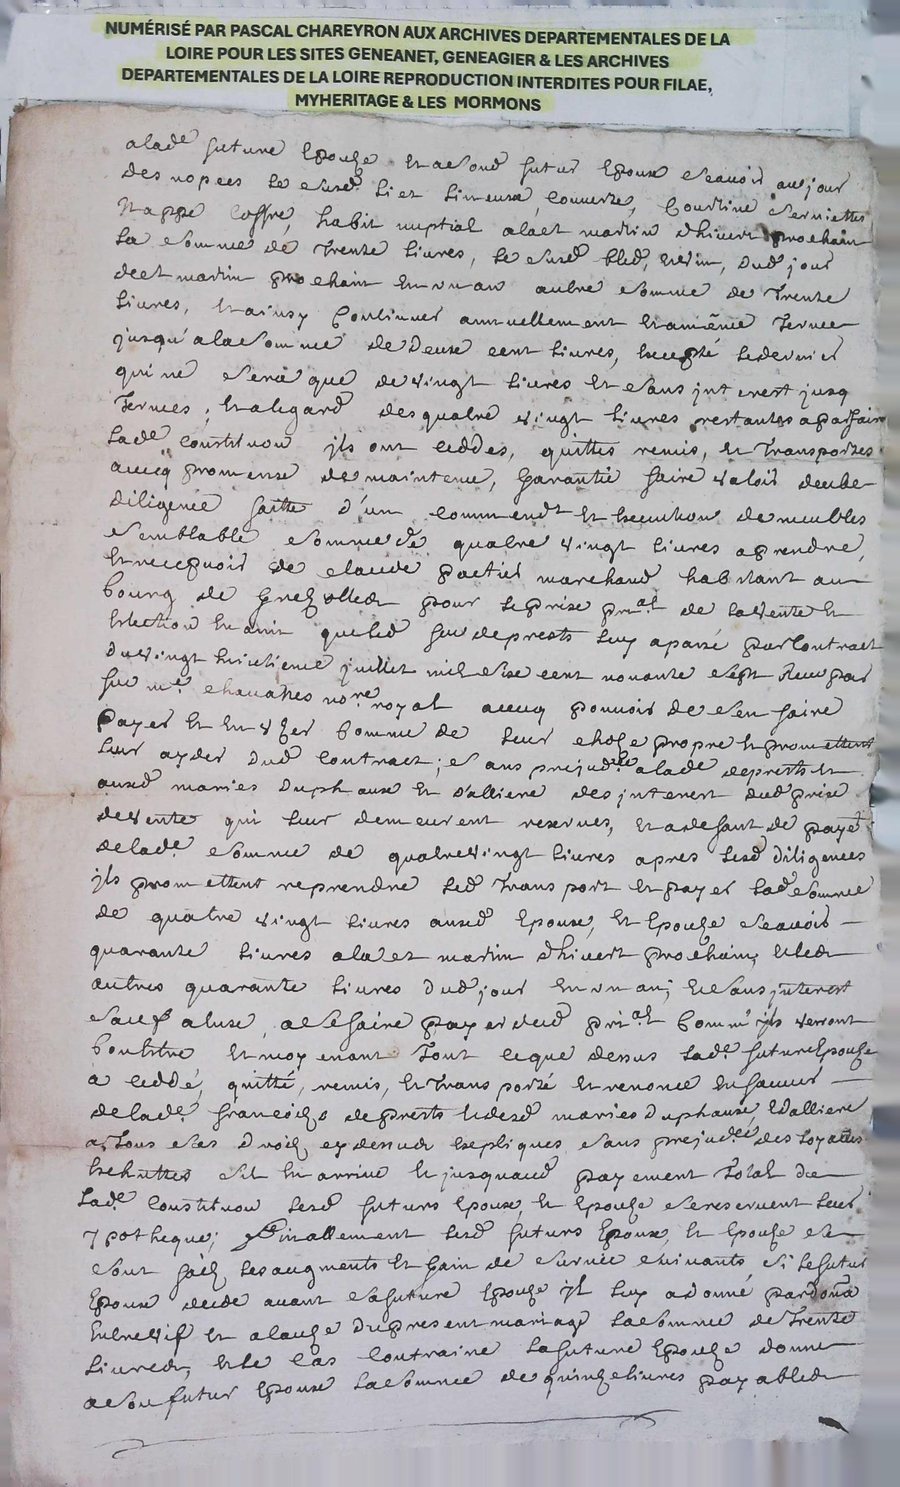 NUMÉRISÉ PAR PASCAL CHAREYRON AUX ARCHIVES DEPARTEMENTALES DE LA
LOIRE POUR LES SITES GENEANET, GENEAGIER & LES ARCHIVES
DEPARTEMENTALES DE LA LOIRE REPRODUCTION INTERDITES POUR FILAE,
MYHERITAGE & LES MORMONS
alade future Epouze et a sond futur Epoux scavoir au jour
des nopces le susd lict linceux, couverte, Courtine serviettes
Nappe Coffre, habit nuptial a la et martin dhivert prochain
La somme de Trente livres, le susd bled, et vin, dud jour
de et martin prochain en un an autre somme de Trente
livres, et ainsy Continuer annuellement et a même Terme
jusqu'a la somme de Deux cent livres, Excepté le dernier
qui ne sera que de vingt livres et sans interest jusq
Termes, et a legard des quatre vingt livres restantes a parfaire
lade Constituon ils ont ceddes, quittes remis, et Transportes
avecq promesse de maintenir, garantir faire valoir deube
diligence faitte d'un commendt et execution de meubles
semblable somme de quatre vingt livres a prendre,
et recepvoir de claude marchand habitant au
bourg de pour le prix prial de la vente et
Election en amir que led feu deprests luy a passé par Contract
du vingt huictieme juillet mil six cent nonante sept Receu par
feu me chavanes nore royal avecq pouvoir de s'en faire
payer et en uzer Comme de leur choze propre et promettent
leur ayder dud Contract; sans prejudice a lade deprests et
ausd maries Duphaux et d'alliere des interest dud prix
de vente qui leur demeurent reserves, et a defaut de payet
de lade somme de quatre vingt livres apres lesd diligences
ils promettent reprendre led Transport et payer lad somme
de quatre vingt livres ausd Epoux, et Epouze scavoir
quarante livres a la et martin dhivert prochain, et les
autres quarante livres dud jour en un an; et sans interest
sauf a luse a se faire payer dud prial Comm ils verront
bon Estre et moyenant Tout ce que dessus lade future Epouze
a ceddé, quitté, remis, et Transporté et renoncé en faveur
de lade francoize deprests et desd maries Duphaux, et dalliere
a Tous ses droicts cy dessus expliques sans prejudice des loyalles
Escheuttes sil en arrive et jusquaud payement Total de
lade Constituon lesd futurs Epoux, et Epouze se reservent leur
ypotheque; finallement lesd futurs Epoux, et Epouze se
sont faicts les augments et gain de survie suivants si le futur
Epoux decede avant sa future Epouze il luy a donné par donaon
Entre vif et a cauze du present mariage la somme de Trente
livres, et le Cas Contraire la future Epouze donne
a son futur Epoux la somme de quinze livres payables